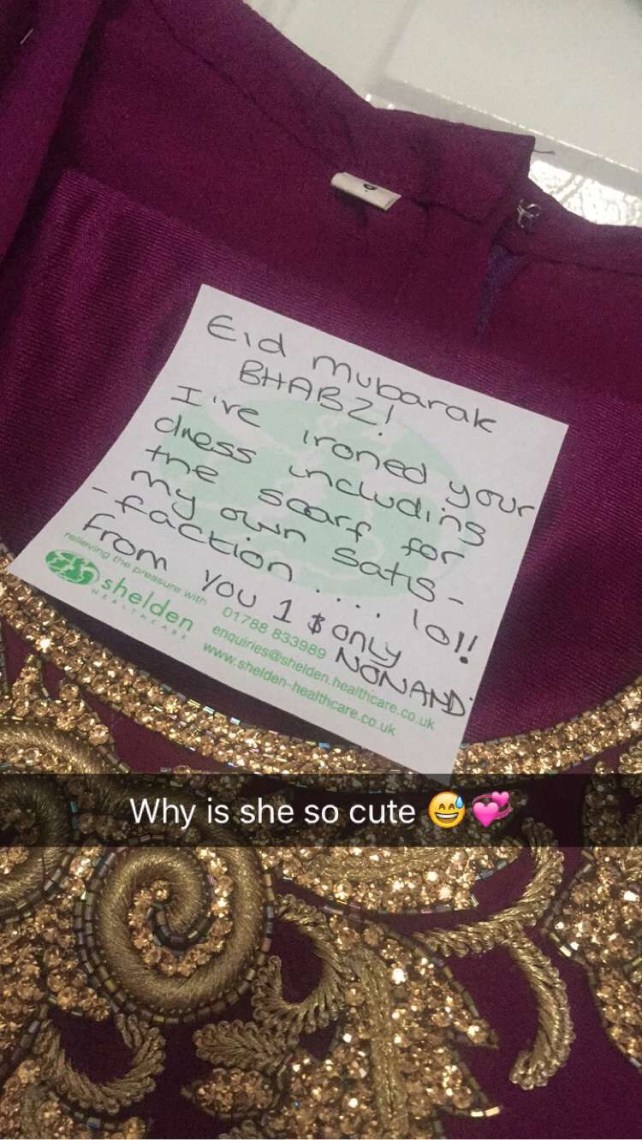 Eid mubarak
BHABZ!
I've ironed your
dress including
the scarf for
my own satis-
-faction .... lol!
From you 1 $ only
NONAND
relieving the pressure with
shelden
HEALTHCARE
01788 833989
enquiries@shelden.healthcare.co.uk
www.shelden-healthcare.co.uk
Why is she so cute 😅💞